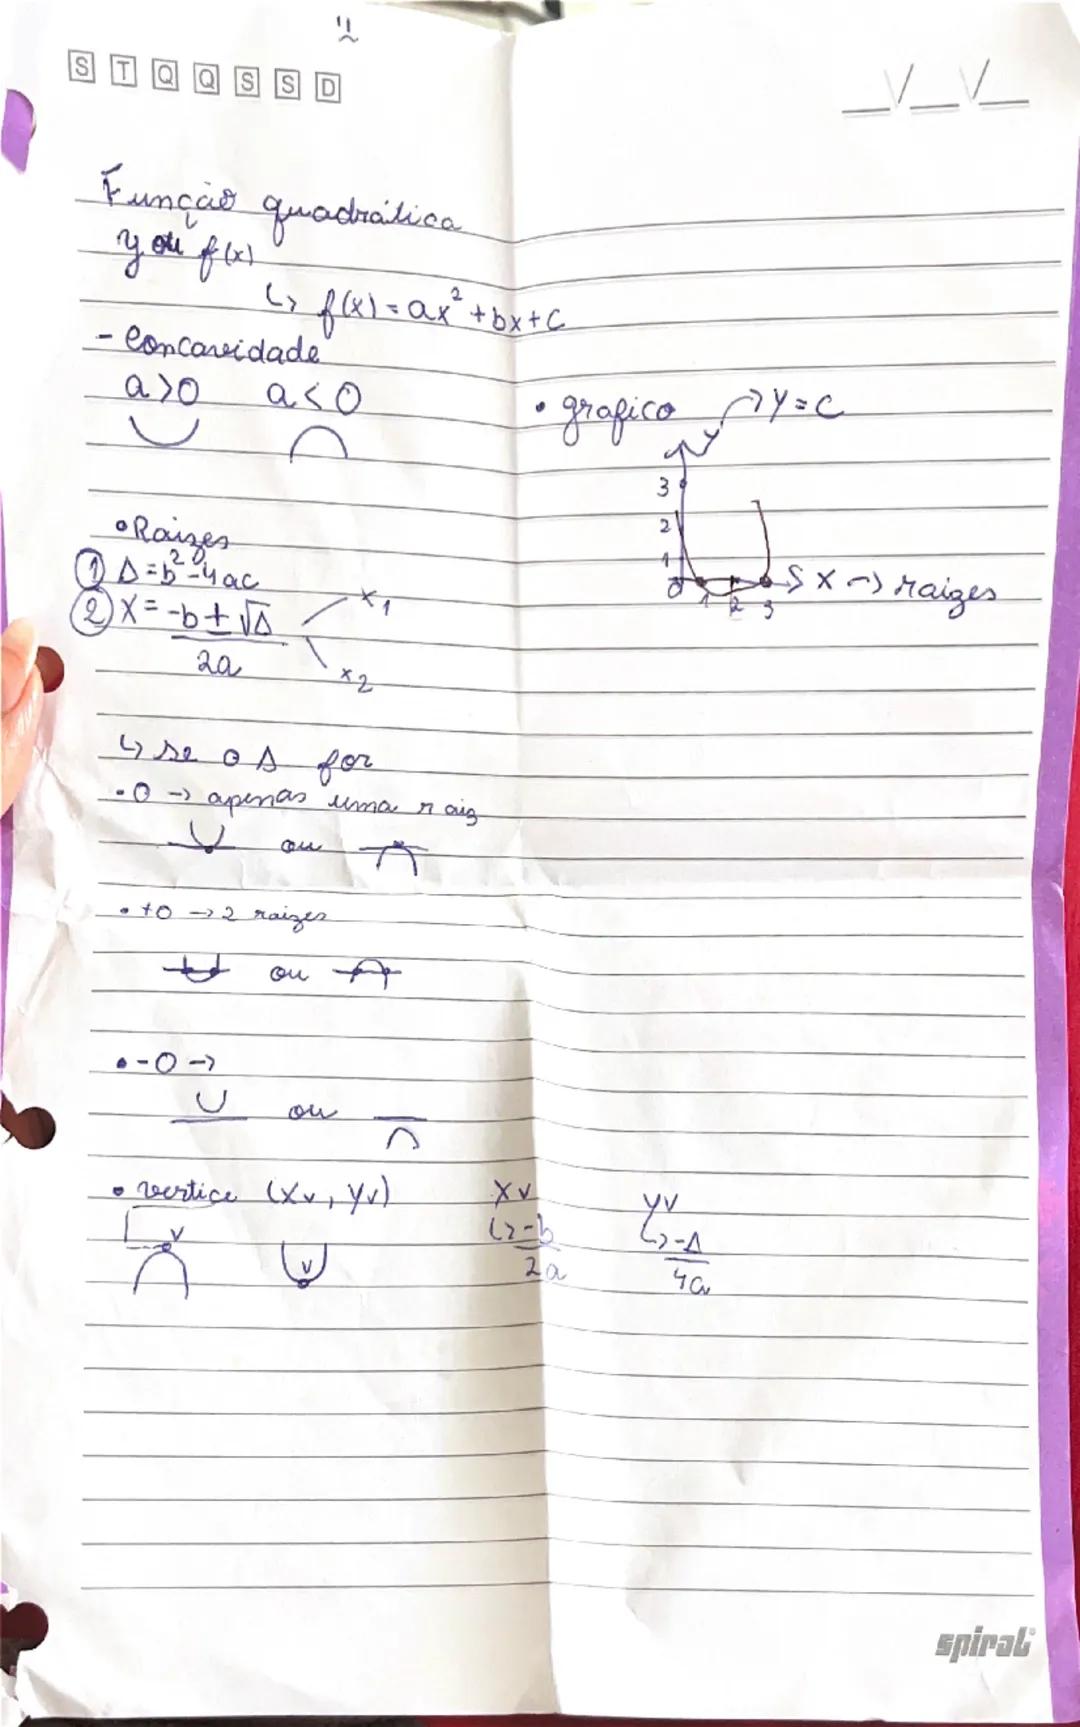 S T Q Q S S D
Função quadrática
y ou f(x)
↳ f(x) = ax² + bx + c
- Concavidade
a>0 a<0
• Raizes
① Δ = b² - 4ac
② X = -b ± √Δ x1
2a x2
↳ se o Δ for
• 0 → apenas uma raiz
ou
• +0 → 2 raizes
ou
• -0 →
ou
• vertice (Xv, Yv)
V V
Xv
↳ -b
2a
Yv
↳ -Δ
4a
• grafico → Y = C
Y
3
2
1
0 1 2 3 X → raizes
spiral